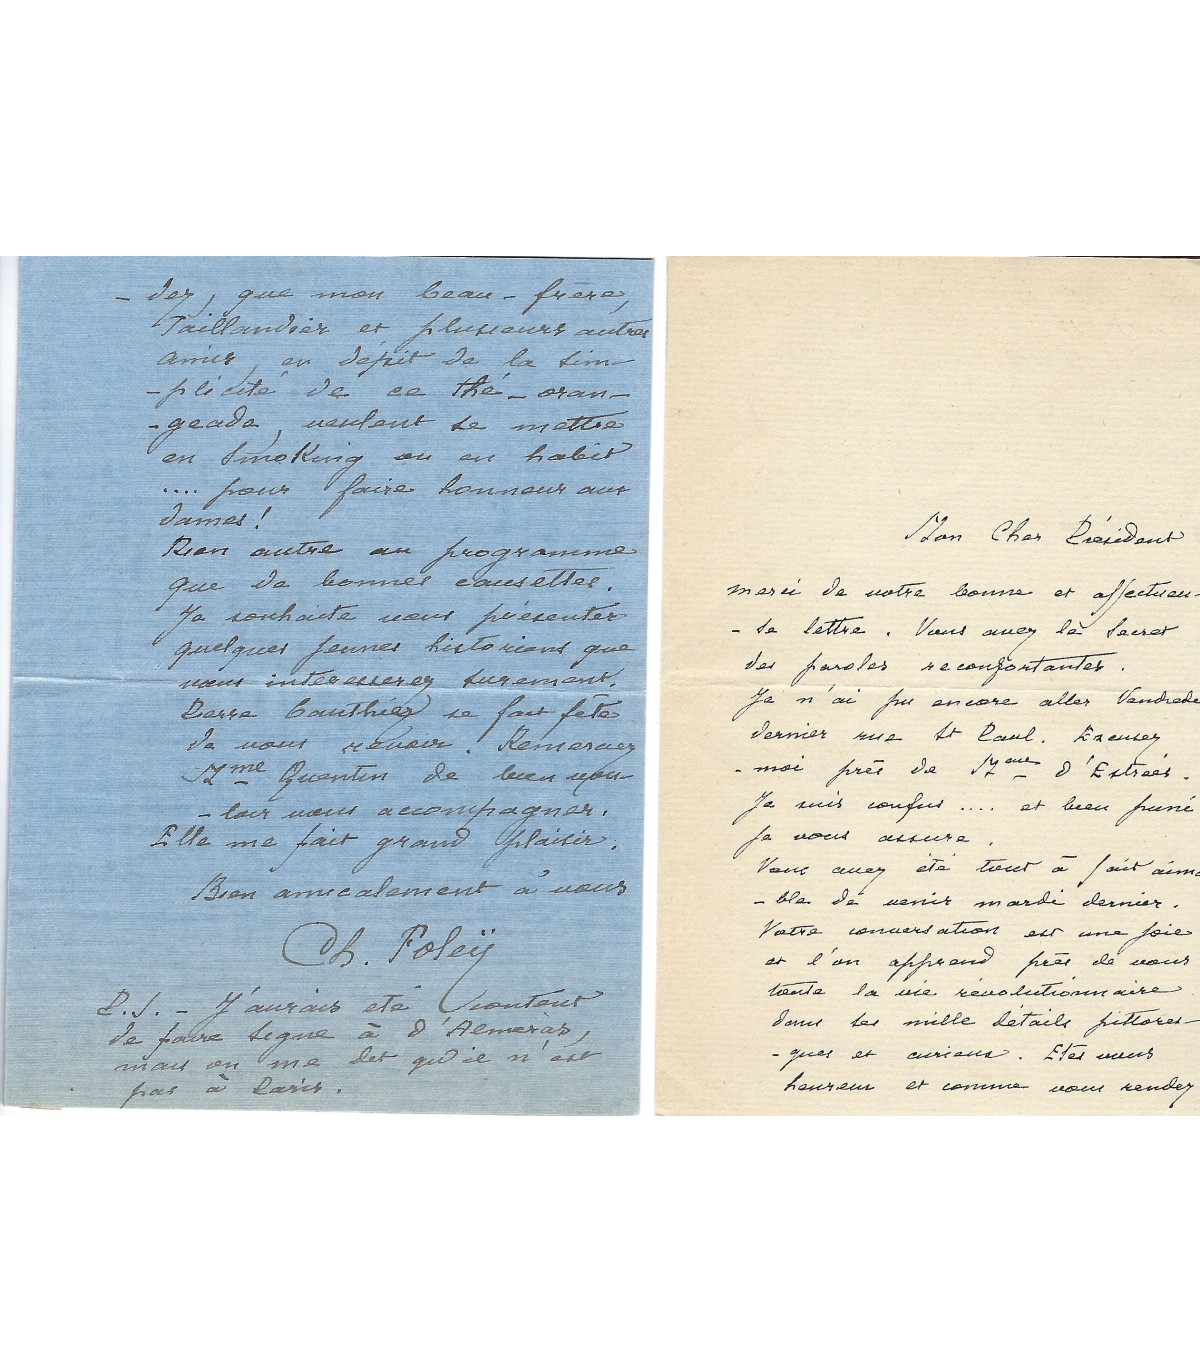 - dez, que mon beau-frère,
Taillandier et plusieurs autres
amis, en dépit de la sim-
-plicité de ce thé-oran-
-geade, veulent se mettre
en smoking ou en habit
.... pour faire honneur aux
dames!
Rien autre au programme
que de bonnes causettes.
Je souhaite vous présenter
quelques jeunes historiens que
vous intéresserez surement.
Pierre Gauthiez se fait fête
de vous revoir. Remerciez
Mme Quentin de bien vou-
-loir vous accompagner.
Elle me fait grand plaisir.
Bien amicalement à vous
Ch. Foleÿ
P.S. - J'aurais été content
de faire signe à d'Alméras,
mais on me dit qu'il n'est
pas à Paris.
Mon Cher Président
merci de votre bonne et affectueu-
-se lettre. Vous avez le secret
des paroles reconfortantes.
Je n'ai pu encore aller Vendredi
dernier rue St Paul. Excusez
-moi près de Mme d'Estrées.
Je suis confus .... et bien puni
je vous assure.
Vous avez été tout à fait aima
-ble de venir mardi dernier.
Votre conversation est une joie
et l'on apprend près de vous
toute la vie révolutionnaire
dans ses mille détails pittores-
-ques et curieux. Etes vous
heureux et comme vous rendez